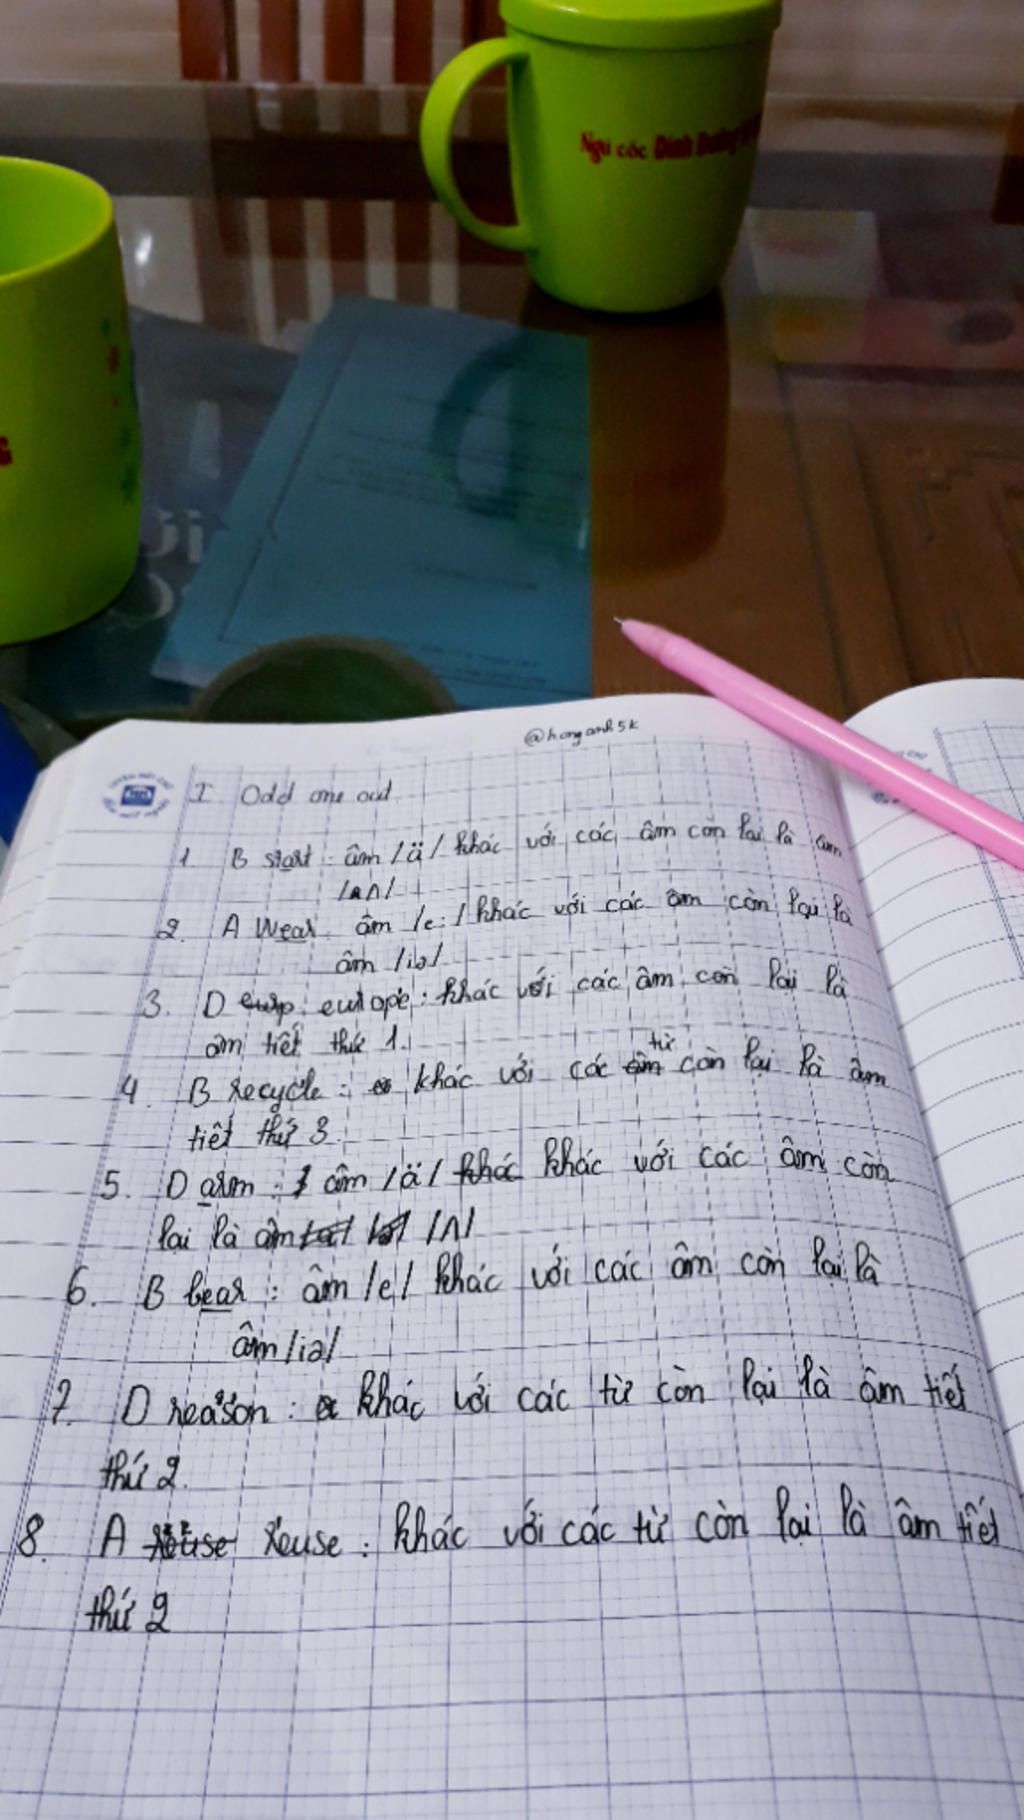 Ngũ cốc Dinh Dưỡng
G
@honganh5k
I. Odd one out
1. B start : âm /ä/ khác với các âm còn lại là âm
/aʌ/
2. A wear âm /e:/ khác với các âm còn lại là
âm /iə/
3. D europe : khác với các âm còn lại là
âm tiết thứ 1.
4. B recycle : khác với các từ còn lại là âm
tiết thứ 3
5. D arm : âm /ä/ khác khác với các âm còn
lại là âm /ʌ/
6. B bear : âm /e/ khác với các âm còn lại là
âm /iə/
7. D rea'son : khác với các từ còn lại là âm tiết
thứ 2.
8. A reuse reuse : khác với các từ còn lại là âm tiết
thứ 2